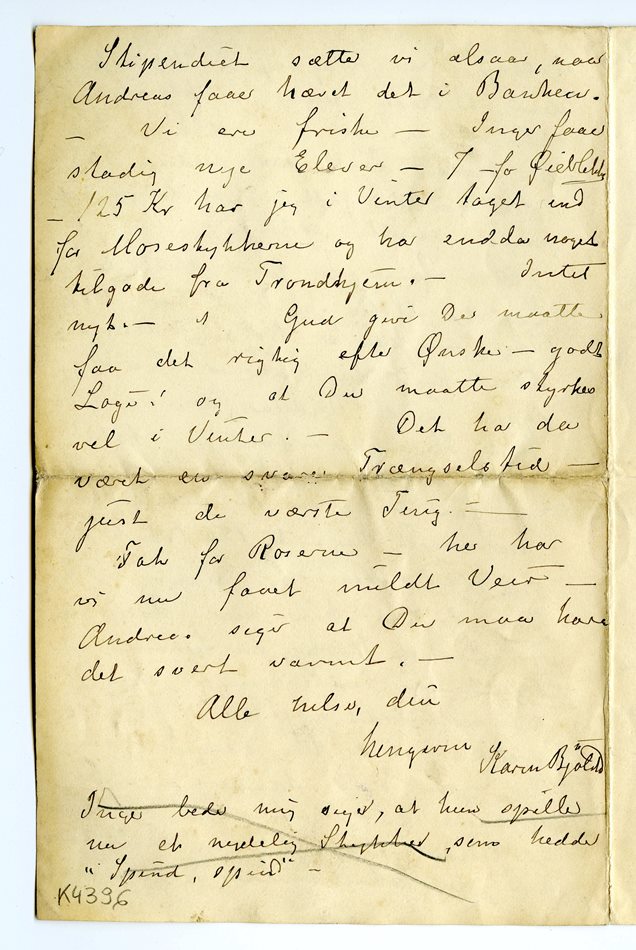 Stipendiet sætte vi alsaa, naar
Andreas faaer hævet det i Banken.
— Vi ere friske — Inger faar
stadig nye Elever — 7 for Øieblikket
— 125 Kr har jeg i Vinter taget ind
for Mosestykkerne og har endda noget
tilgode fra Trondhjem. — Intet
nyt. — Gud give Du maatte
faa det rigtig efter Ønske — godt
Logi! og at Du maatte styrkes
vel i Vinter. — Det har da
været en svær Trængselstid —
just de værste Ting. —
Tak for Roserne — her har
vi nu faaet mildt Veir —
Andreas siger at Du maa have
det svert varmt. —
Alle hilser, din
hengivne Karen Bjølstad
Inger beder mig sige, at hun spiller
nu et nydelig Stykke, som hedder
"Spind, spind" —
K4396